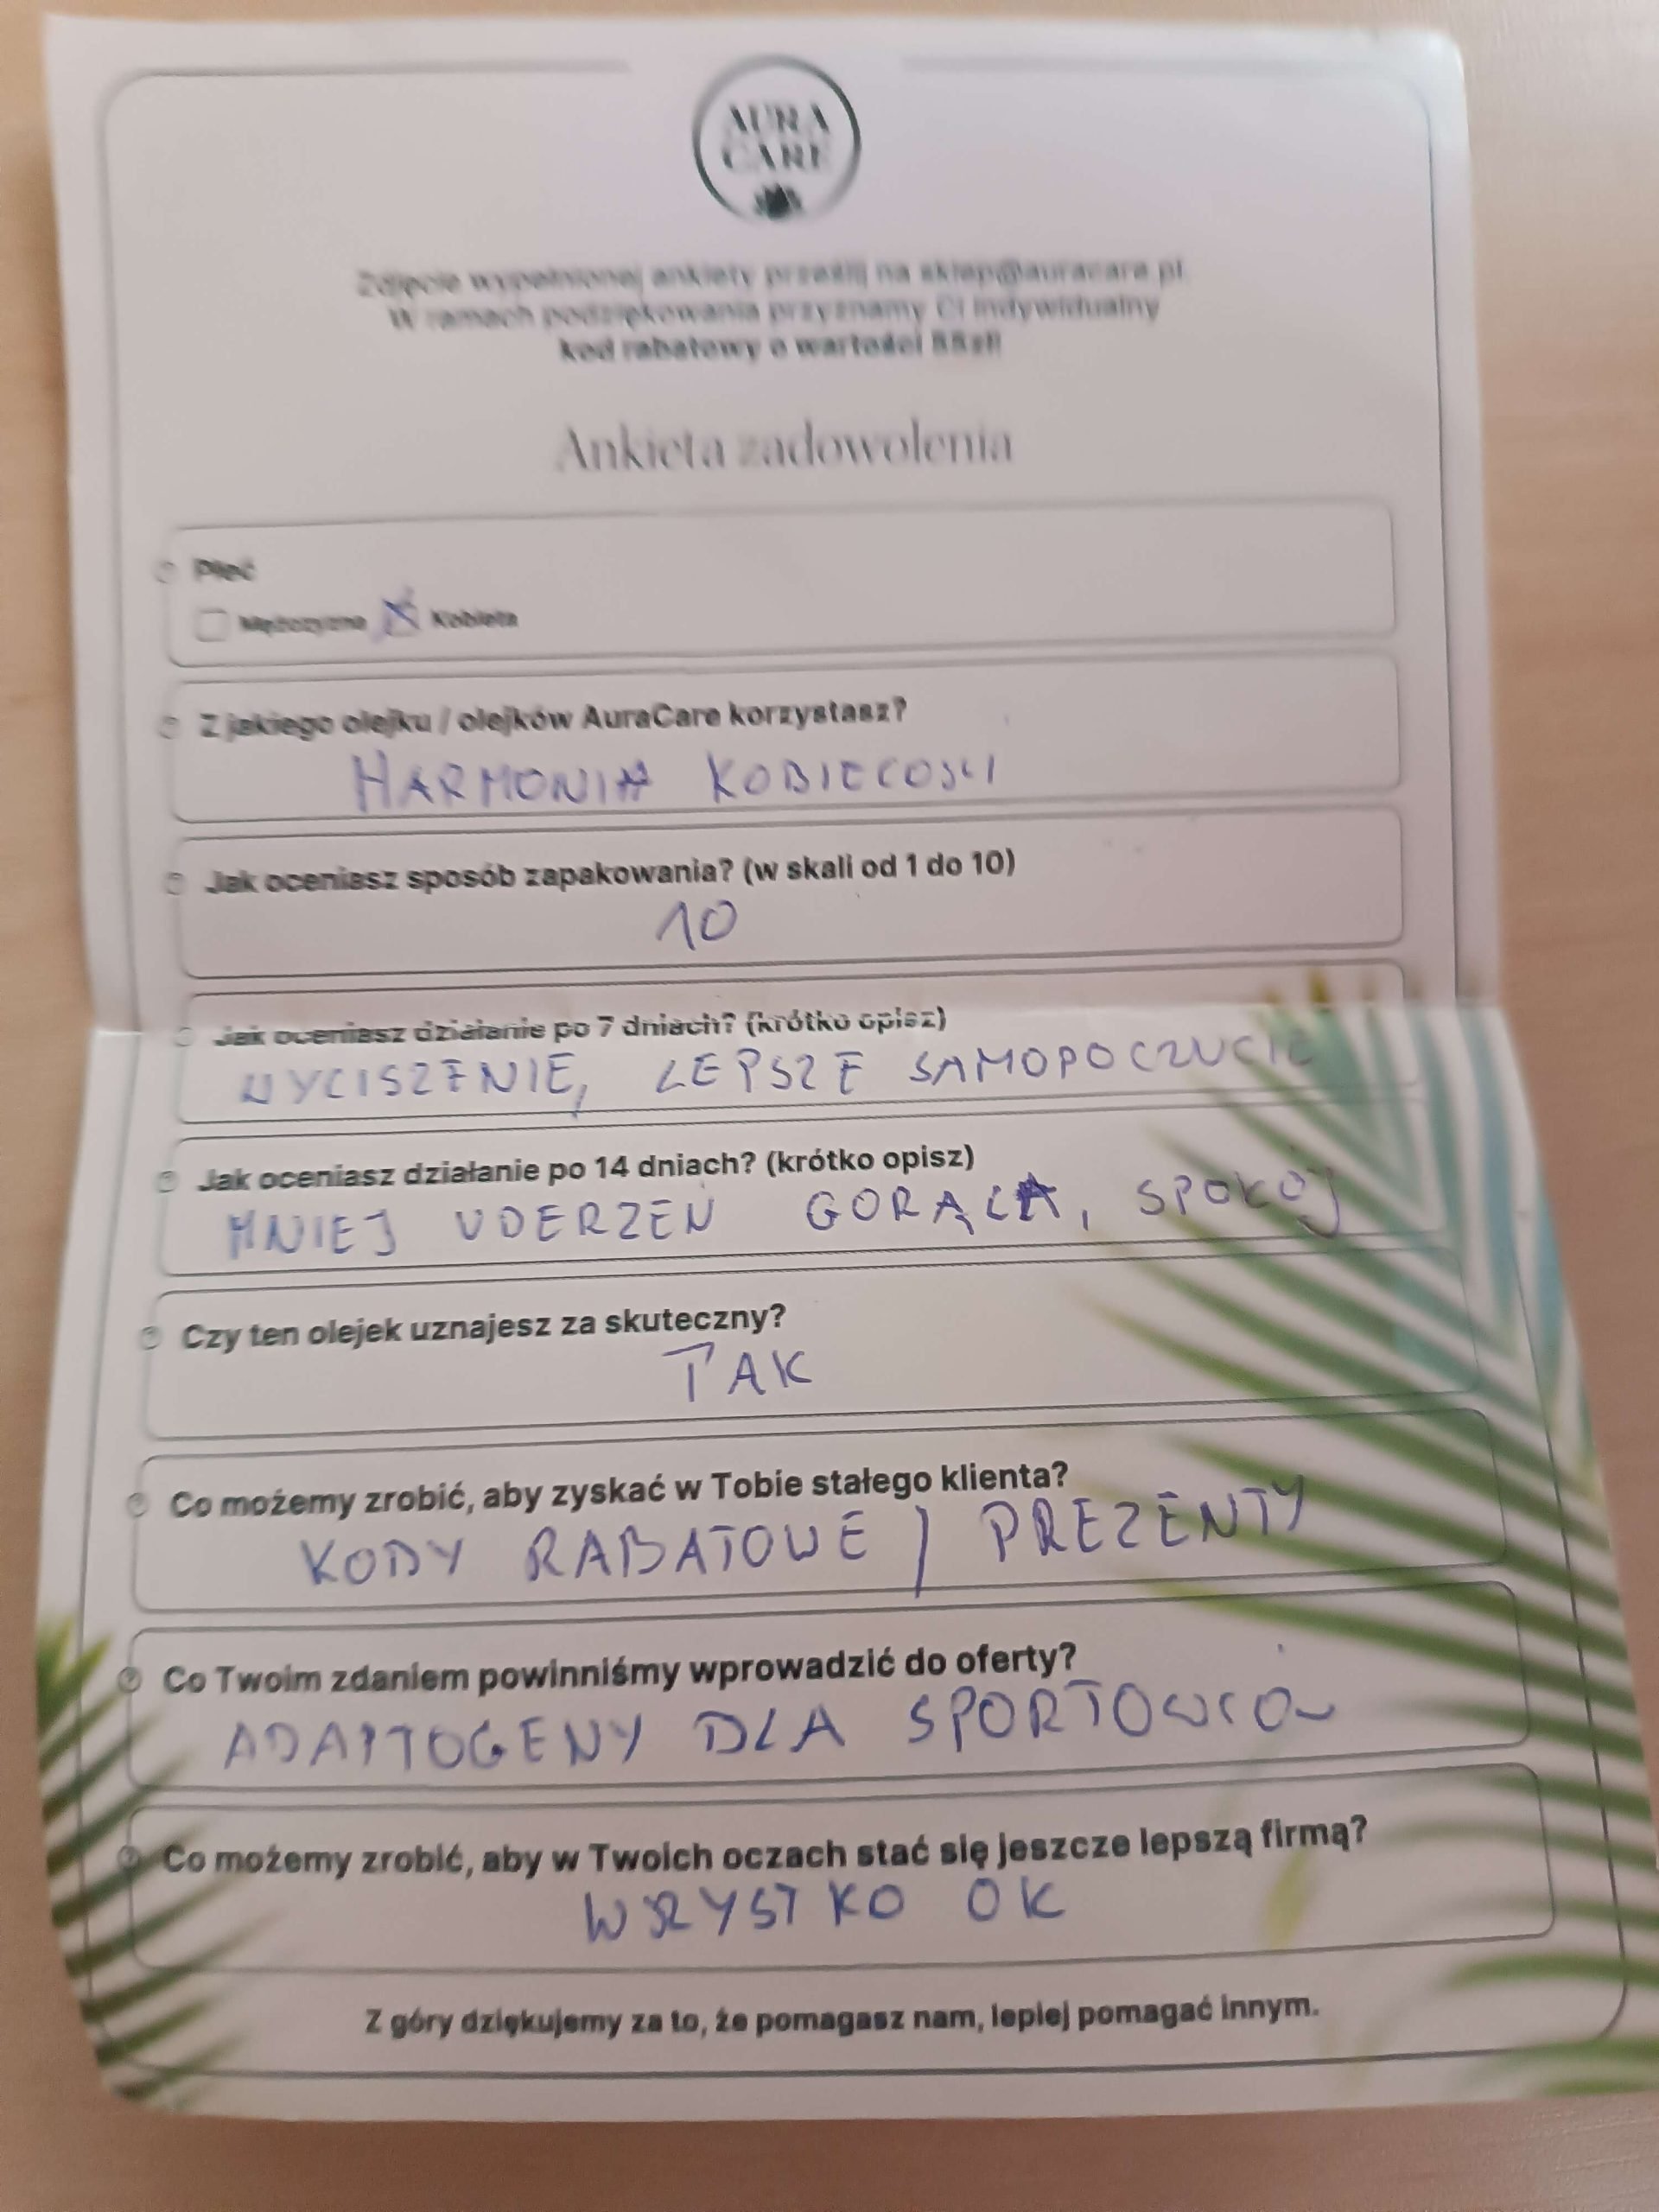 AURA
CARE
Zdjęcie wypełnionej ankiety prześlij na sklep@auracare.pl.
W ramach podziękowania przyznamy Ci indywidualny
kod rabatowy o wartości
Ankieta zadowolenia
Płeć
Mężczyzna Kobieta
Z jakiego olejku / olejków AuraCare korzystasz?
HARMONIA KOBIECOSCI
Jak oceniasz sposób zapakowania? (w skali od 1 do 10)
10
Jak oceniasz działanie po 7 dniach? (krótko opisz)
WYCISZENIE, LEPSZE SAMOPOCZUCIE
Jak oceniasz działanie po 14 dniach? (krótko opisz)
MNIEJ UDERZEN GORĄCA, SPOKÓJ
Czy ten olejek uznajesz za skuteczny?
TAK
Co możemy zrobić, aby zyskać w Tobie stałego klienta?
KODY RABATOWE / PREZENTY
Co Twoim zdaniem powinniśmy wprowadzić do oferty?
ADAPTOGENY DLA SPORTOWCÓW
Co możemy zrobić, aby w Twoich oczach stać się jeszcze lepszą firmą?
WSZYSTKO OK
Z góry dziękujemy za to, że pomagasz nam, lepiej pomagać innym.